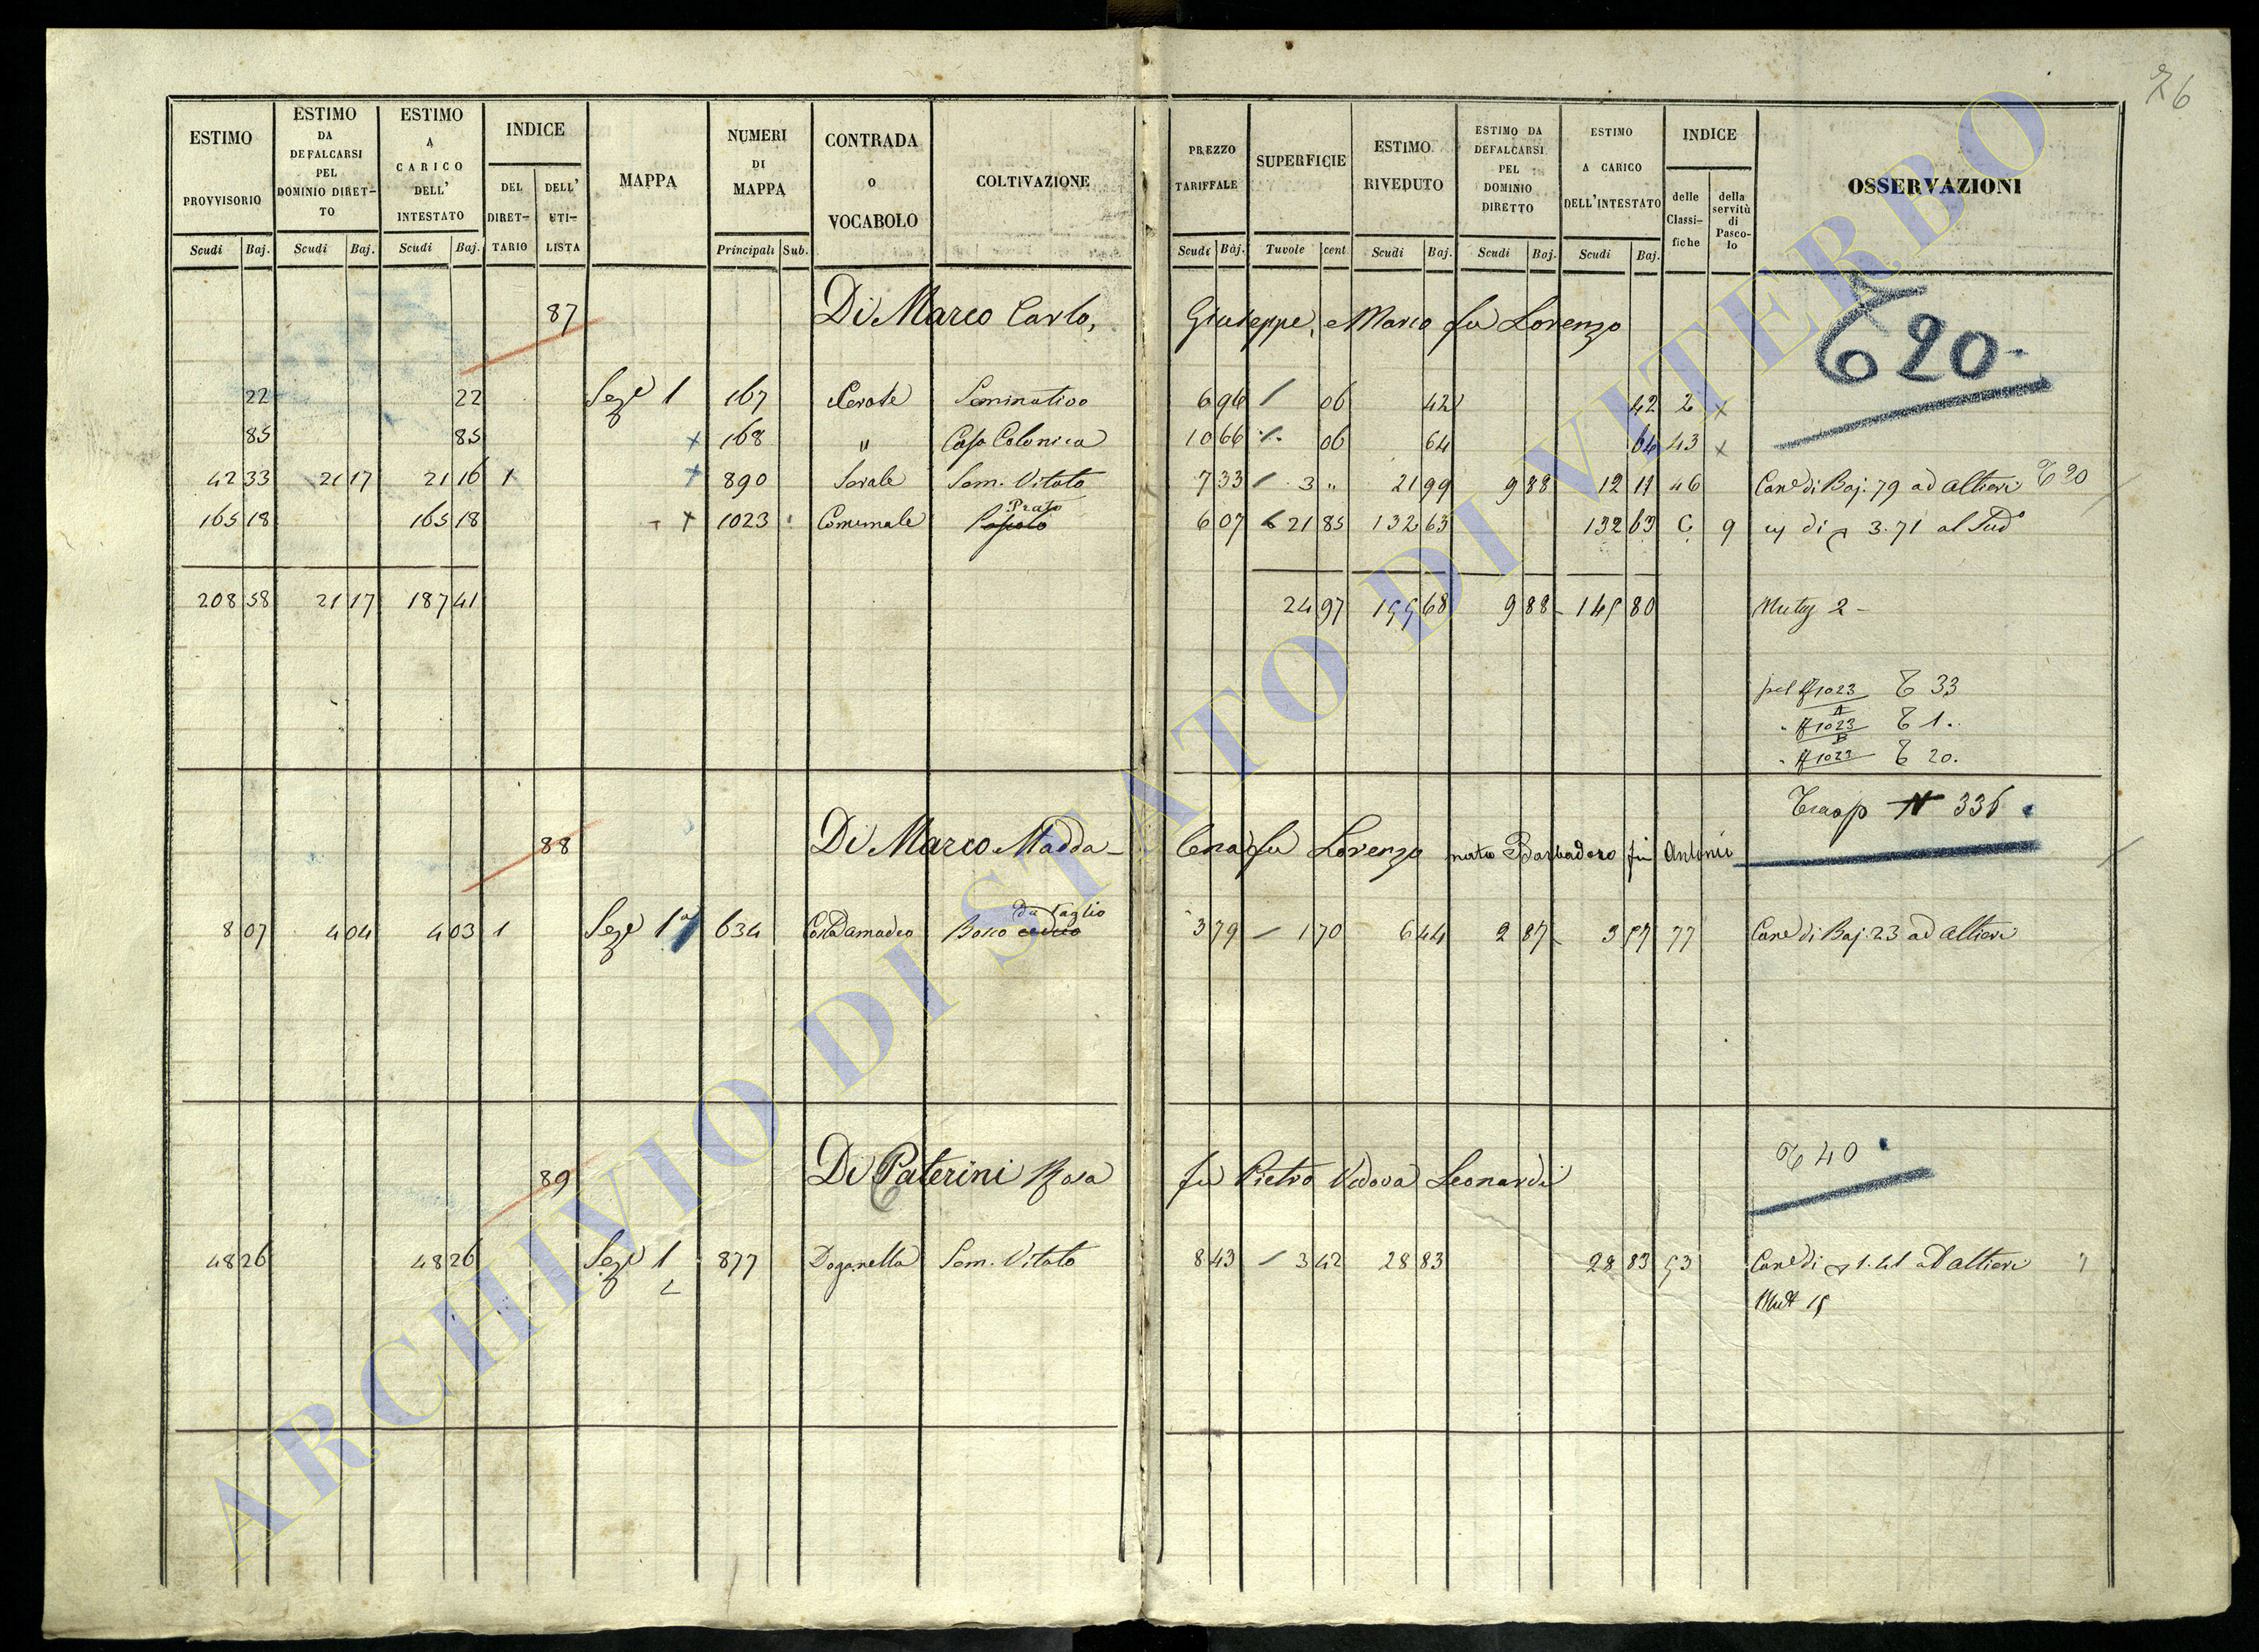 76
ESTIMO PROVVISORIO Scudi Baj.
ESTIMO DA DEFALCARSI PEL DOMINIO DIRET-TO Scudi Baj.
ESTIMO A CARICO DELL' INTESTATO Scudi Baj.
INDICE DEL DIRET-TARIO DELL' UTI-LISTA
MAPPA
NUMERI DI MAPPA Principali Sub.
CONTRADA O VOCABOLO
COLTIVAZIONE
PREZZO TARIFFALE Scudi Baj.
SUPERFICIE Tavole cent
ESTIMO RIVEDUTO Scudi Baj.
ESTIMO DA DEFALCARSI PEL DOMINIO DIRETTO Scudi Baj.
ESTIMO A CARICO DELL'INTESTATO Scudi Baj.
INDICE delle Classi-fiche della servitù di Pasco-lo
OSSERVAZIONI
87 Di Marco Carlo, Giuseppe, e Marco fu Lorenzo T 20.
22 22 Seze 1 167 Seminativo 6 96 / 06 42 42 2 x
85 85 x 168 " Casa Colonica 10 66 /. 06 64 64 43 x
42 33 21 17 21 16 1 x 890 Sem. Vitato 7 33 / 3 " 21 99 9 88 12 11 46 Cane di Baj. 79 ad Altieri T 20
165 18 165 18 x 1023 Comunale Prato 6 07 21 85 132 63 132 63 C 9 di 3.71 al Sudo
208 58 21 17 187 41 24 97 155 68 9 88 145 80 2
pel 1023 T 33
A
" 1023 T 1.
B
" 1023 T 20.
Trasp N 336
88 Di Marco Madda-lena fu Lorenzo Barbadoro fu Antonio
8 07 4 04 4 03 1 Seze 1a 634 Bosco da Taglio ceduo 3 79 / 1 70 6 44 2 87 3 57 77 Cane di Baj. 23 ad Altieri
T 40
89 Di Paterini Rosa fu Pietro Vedova Leonardi
48 26 48 26 Seze 1 877 Doganella Sem. Vitato 8 43 / 3 42 28 83 28 83 53 Cane di 1.41 ad Altieri
Mutt 15
ARCHIVIO DI STATO DI VITERBO